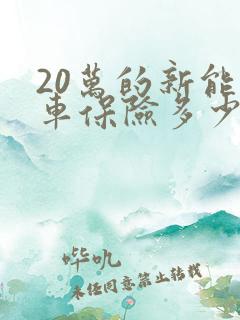 20萬的新能
車保險多少
哔吼
未任同意禁止转载